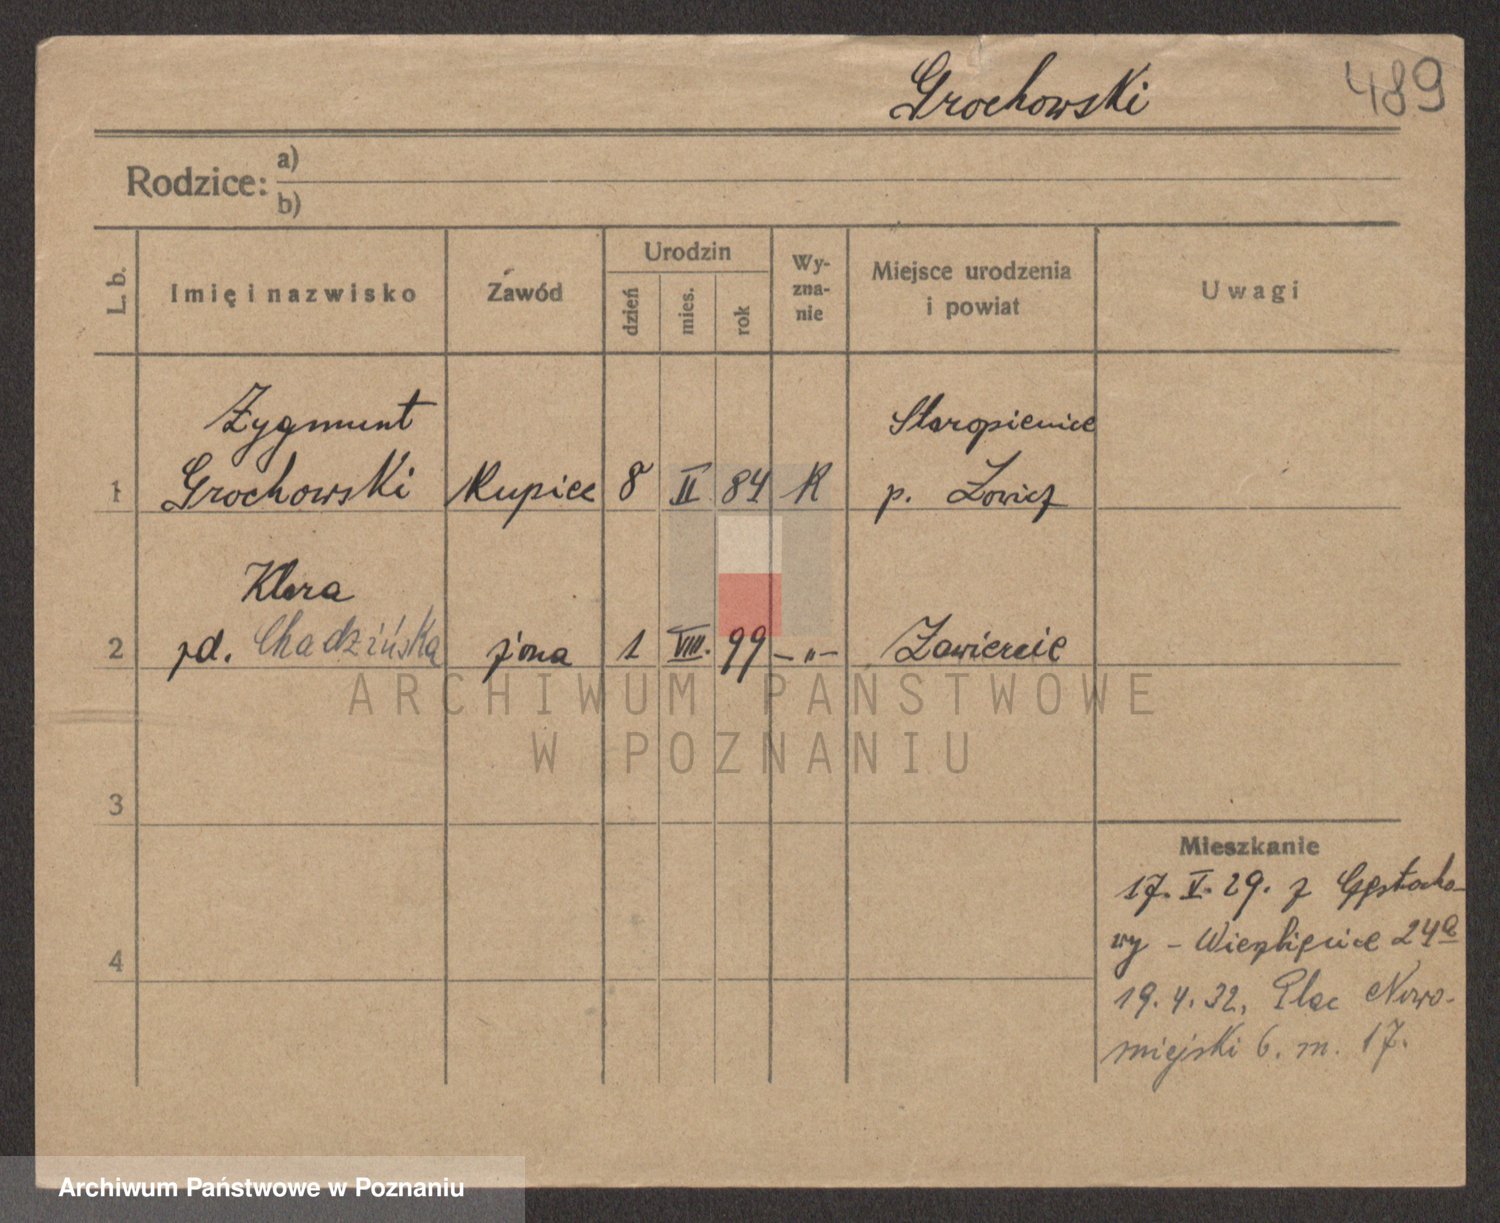 Grochowski 489
Rodzice: a)
b)
L. b.
Imię i nazwisko
Zawód
Urodzin
dzień
mies.
rok
Wy-
zna-
nie
Miejsce urodzenia
i powiat
Uwagi
Zygmunt
Staropienice
1 Grochowski Kupiec 8 II 84 R p. Łowicz
Klara
2 żona 1 VIII. 99 -„- Zawiercie
ARCHIWUM PAŃSTWOWE
W POZNANIU
3
Mieszkanie
17. V. 29. z Częstocho-
wy - Wierzbięcice 24a
4
19. 4. 32, Plac Nowo-
miejski 6. m. 17.
Archiwum Państwowe w Poznaniu